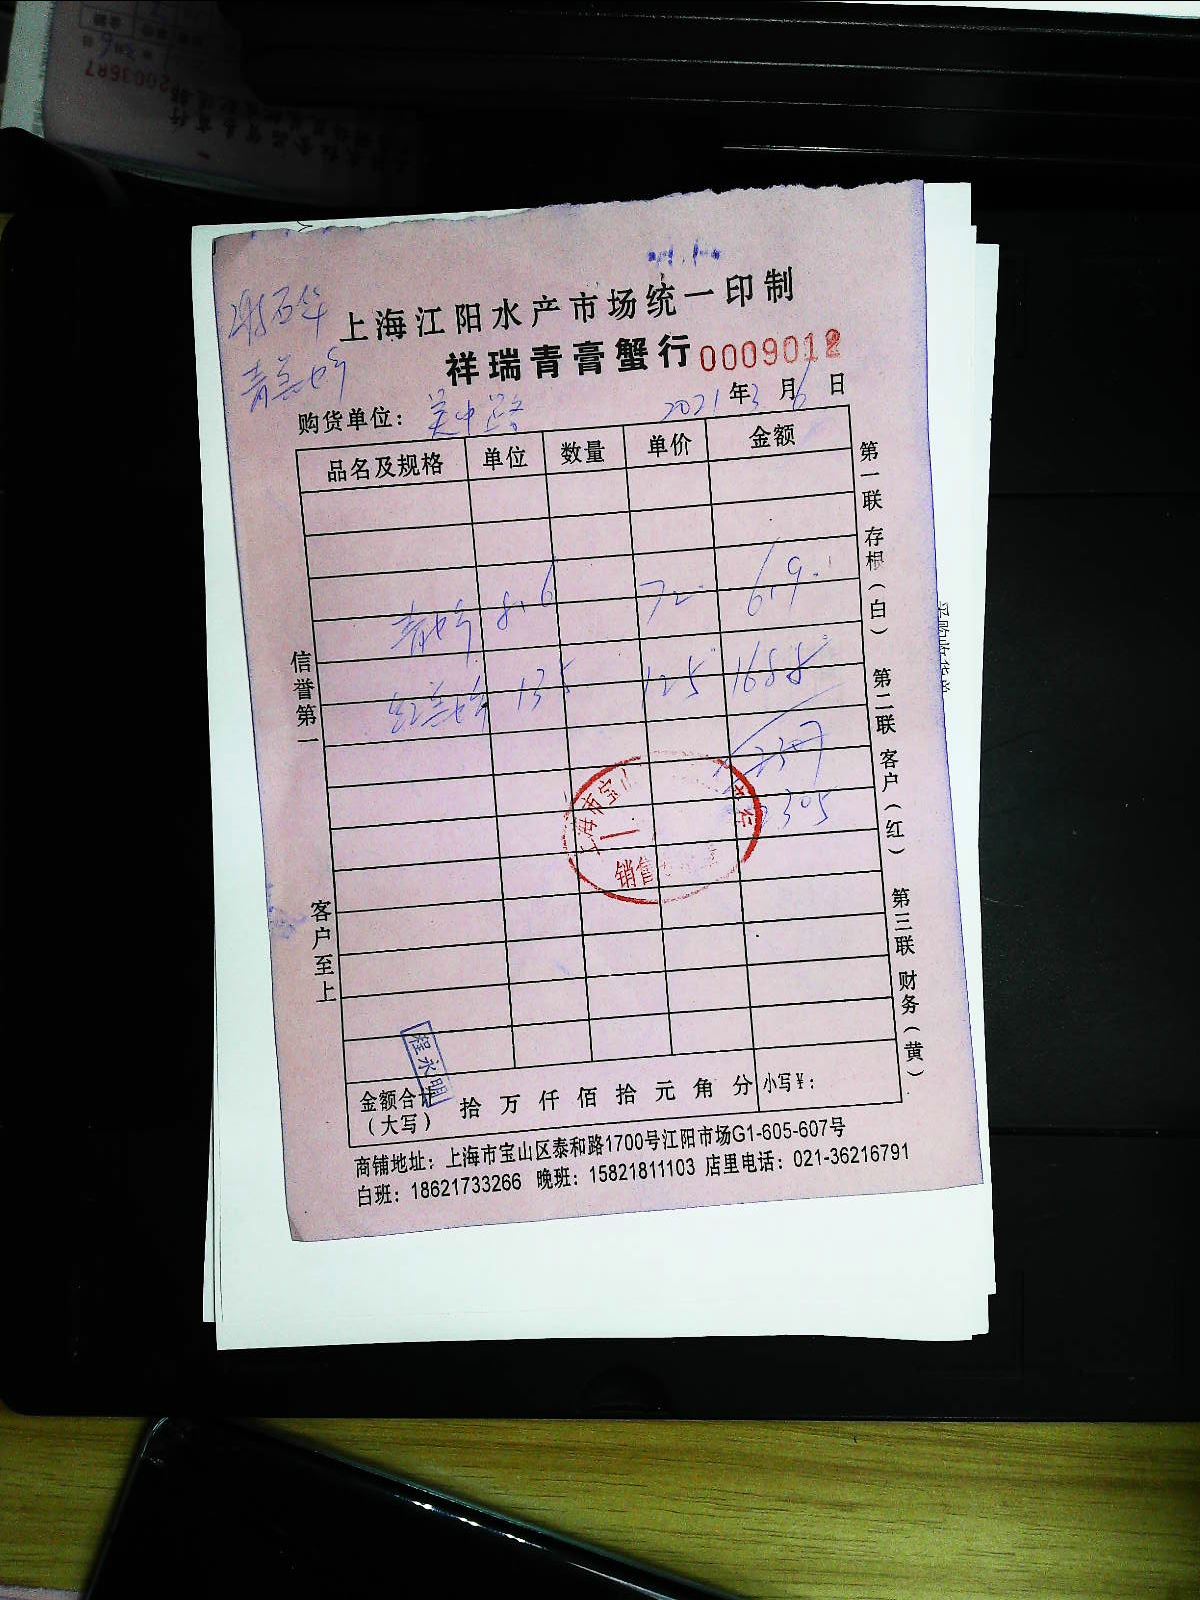 上海江阳水产市场统一印制
祥瑞青膏蟹行 0009012
购货单位： 吴中路 2021年3月6日
品名及规格 单位 数量 单价 金额
青 8.6 72. 619.
红膏 13.5 125 1688
2307
2305
上海市宝
销售
信誉第一
客户至上
第一联 存根（白） 第二联 客户（红） 第三联 财务（黄）
程永明
金额合计 拾 万 仟 佰 拾 元 角 分 小写¥：
（大写）
商铺地址：上海市宝山区泰和路1700号江阳市场G1-605-607号
白班：18621733266 晚班：15821811103 店里电话：021-36216791